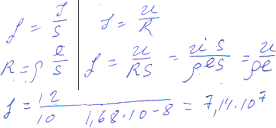 j = J/S | j = u/R
R = ρ e/s | j = u/RS = u s/ρ e s = u/ρe
j = 12/10 1,68·10-8 = 7,14·10⁷